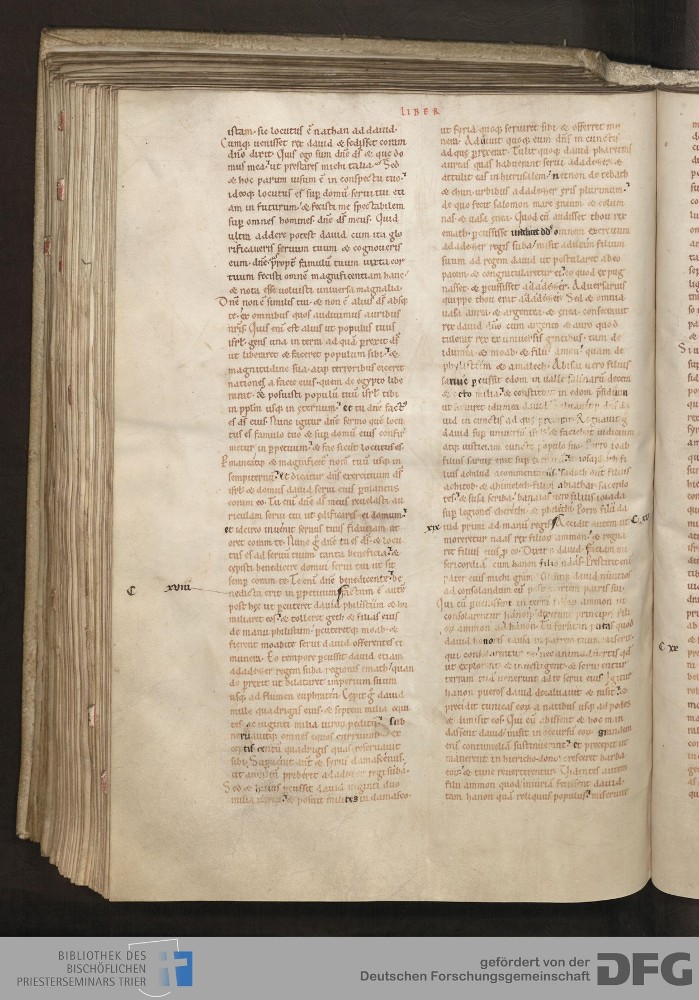 LIBER
istam. sic locutus ē nathan ad dauid.
Cumq; uenisset rex dauid & sedisset coram
dño dixit. Quis ego sum dñe ds̄ & que do
mus mea ut prestares michi talia. Sed
& hoc parum uisum ē in conspectu tuo.
ideoq; locutus es sup domū serui tui eti
am in futurum. & fecisti me spectabilem
sup omnes homines dñe ds̄ meus. Quid
ultra addere potest dauid cum ita glo
rificaueris seruum tuum & cognoueris
eum. dñe propt famulū tuum iuxta cor
tuum fecisti omnē magnificentiam hanc.
& nota esse uoluisti uniuersa magnalia.
Dñe non ē similis tui. & non ē alius ds̄ absq;
te. ex omnibus quos audiuimus auribus
nr̄is. Quis enī est alius ut populus tuus
isrl. gens una in terra ad quā prexit ds̄
ut liberaret & faceret populum sibi. &
magnitudine sua. atq; terroribus eiceret
nationes a facie eius. quem de egypto libe
rarat. & posuisti populū tuū isrl tibi
in pplm usq; in eternum. et tu dñe factꝰ
es ds̄ eius. Nunc igitur dñe sermo quē locu
tus es famulo tuo & sup domū eius confir
metur in ppetuum. & fac sicut locutus es.
Pmaneatq; & magnificet nomē tuū usq; in
sempiternū. et dicatur dñs exercituum ds̄
isrl. & domus dauid serui eius pmanens
coram eo. Tu enī dñe ds̄ meus reuelasti au
riculam serui tui ut edificares ei domum.
et idcirco inuenit seruus tuus fiduciam ut
oret coram te. Nunc g dñe tu es ds̄. & locu
tus es ad seruū tuum tanta beneficia. &
cepisti benedicere domui serui tui ut sit
semp coram te. Te enī dñe benedicente be
nedicta erit in ppetuum. factum ē autē
C xviii
post hec ut pcuteret dauid philistiim & hu
miliaret eos. & tolleret geth & filias eius
de manu philistiim. pcuteretq; moab. &
fierent moabite serui dauid offerentes ei
munera. Eo tempore pcussit dauid etiam
adadezer regem suba regionis emath. quan
do prexit ut dilataret imperium suum
usq; ad flumen eufraten. Cepit g dauid
mille quadrigas eius. & septem milia equi
tes. ac uiginti milia uirorum peditū. sub
neruauitq; omnes equos curruum. ex
ceptis centū quadrigis quas reseruauit
sibi. Superuenit autē & syrus damascenus.
ut auxiliū preberet adadezer regi suba.
Sed & huius pcussit dauid uiginti duo
milia uiroru. & posuit milites in damasco.
ut syria quoq; seruiret sibi. & offerret mu
nera. Adiuuit quoq; eum dñs in cunctis
ad que prexerat. Tulit quoq; dauid pharetras
aureas quas habuerant serui adadezer. &
attulit eas in hierusalem. necnon de tebath
& chun urbibus adadezer eris plurimum.
de quo fecit salomon mare eneum. & colum
nas & uasa enea. Quod cū audisset thou rex
emath pcussisse uidelicet dd omnem exercitum
adadezer regis suba. misit aduram filium
suum ad regem dauid ut postularet ab eo
pacem. & congratularetur ei eo quod expug
nasset & pcussisset adadezer. Aduersarius
quippe thou erat adadezer. Sed & omnia
uasa aurea. & argentea. & enea. consecrauit
rex dauid dño cum argento & auro quod
tulerat rex ex uniuersis gentibus. tam de
idumea. & moab. & filiis amon. quam de
philistiim & amalech. Abisai uero filius
saruie pcussit edom in ualle salinarū decem
& octo milia. & constituit in edom psidium
ut seruiret idumea dauid.
uid in cunctis ad que prexerat. Regnauit g
dauid sup uniuersū isrl. & faciebat iudicium
atq; iusticiam cuncto populo suo. Porro ioab
filius saruie erat sup exercitū. & iosaphath fi
lius achilud a commentariis. Sadoch autē filius
achitob. & abimelech filius abiathar. sacerdo
tes. & susa scriba. banaias uero filius ioiada
sup legiones cherethi. & phelethi. Porro filii da
uid primi ad manū regis. Accidit autem ut
xix
C xix
moreretur naas rex filiorū ammon. & regna
ret filius eius p eo. Dixitq; dauid. Faciam mi
sericordiā cum hanon filio naas. Prestitit enī
pater eius michi grām. Misitq; dauid nuntios
ad consolandum eū sup morte patris sui.
Qui cū puenissent in terrā filiorū ammon ut
consolarentur hanon. dixerunt principes fili
orū ammon ad hanon. Tu forsitan putas quod
dauid honoris causa in patrem tuum miserit
qui consolarentur te. nec animaduertis qđ
ut explorent & inuestigent & scrutentur
terram tuā uenerint ad te serui eius. Igitur
hanon pueros dauid decaluauit & rasit. &
precidit tunicas eorū a natibus usq; ad pedes.
& dimisit eos. Qui cū abissent & hoc man
dassent dauid. misit in occursū eorū. grandem
enī contumeliā sustinuerant. et precepit ut
manerent in hiericho donec cresceret barba
eorū. & tunc reuerterentur. Videntes autem
filii ammon quod iniuriā fecissent dauid.
tam hanon quā reliquus populus. miserunt
C xx
BIBLIOTHEK DES
BISCHÖFLICHEN
PRIESTERSEMINARS TRIER
gefördert von der
Deutschen Forschungsgemeinschaft
DFG